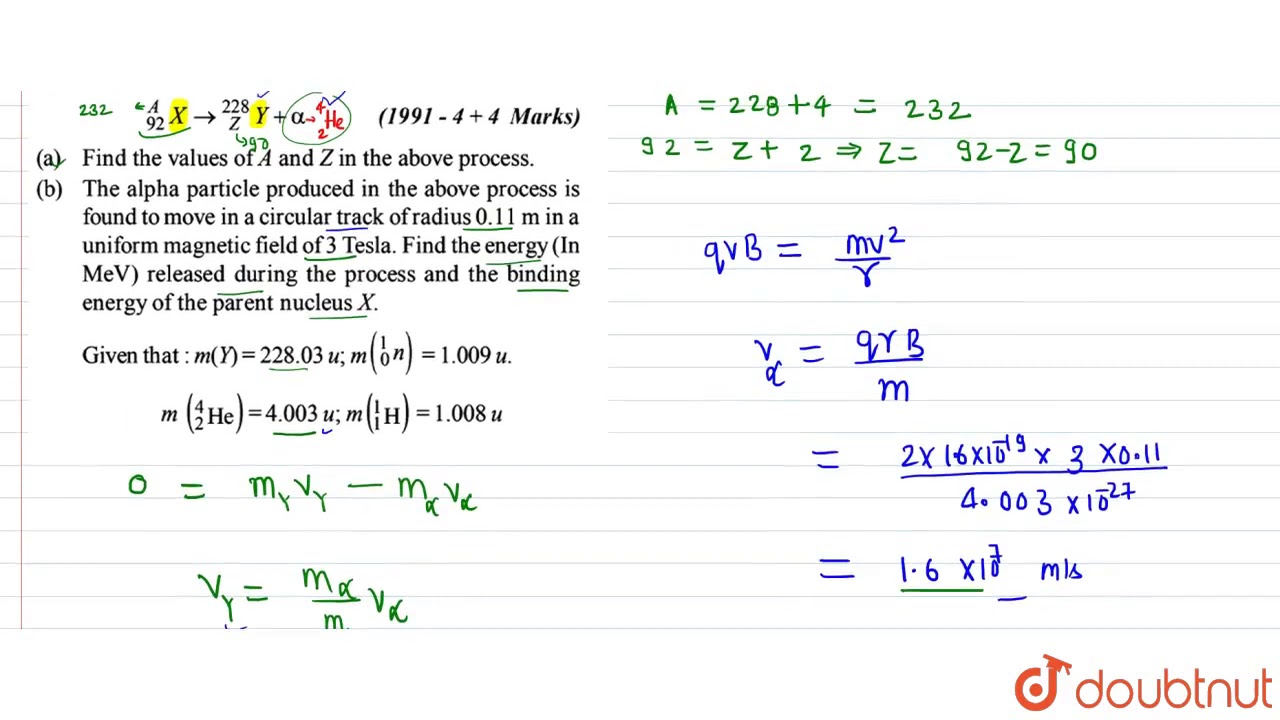 232 ᴬ₉₂X → ²²⁸_Z Y + α → ⁴₂He (1991 - 4 + 4 Marks)
90
(a) Find the values of A and Z in the above process.
(b) The alpha particle produced in the above process is
found to move in a circular track of radius 0.11 m in a
uniform magnetic field of 3 Tesla. Find the energy (In
MeV) released during the process and the binding
energy of the parent nucleus X.
Given that : m(Y) = 228.03 u; m(¹₀n) = 1.009 u.
m (⁴₂He) = 4.003 u; m(¹₁H) = 1.008 u
0 = m_Y V_Y — m_α V_α
V_Y = m_α/m V_α
A = 228 + 4 = 232
92 = Z + 2 ⇒ Z = 92 - 2 = 90
qvB = mv²/r
v_α = qrB/m
= 2 × 1.6 × 10⁻¹⁹ × 3 × 0.11 / 4.003 × 10⁻²⁷
= 1.6 × 10⁷ m/s
doubtnut